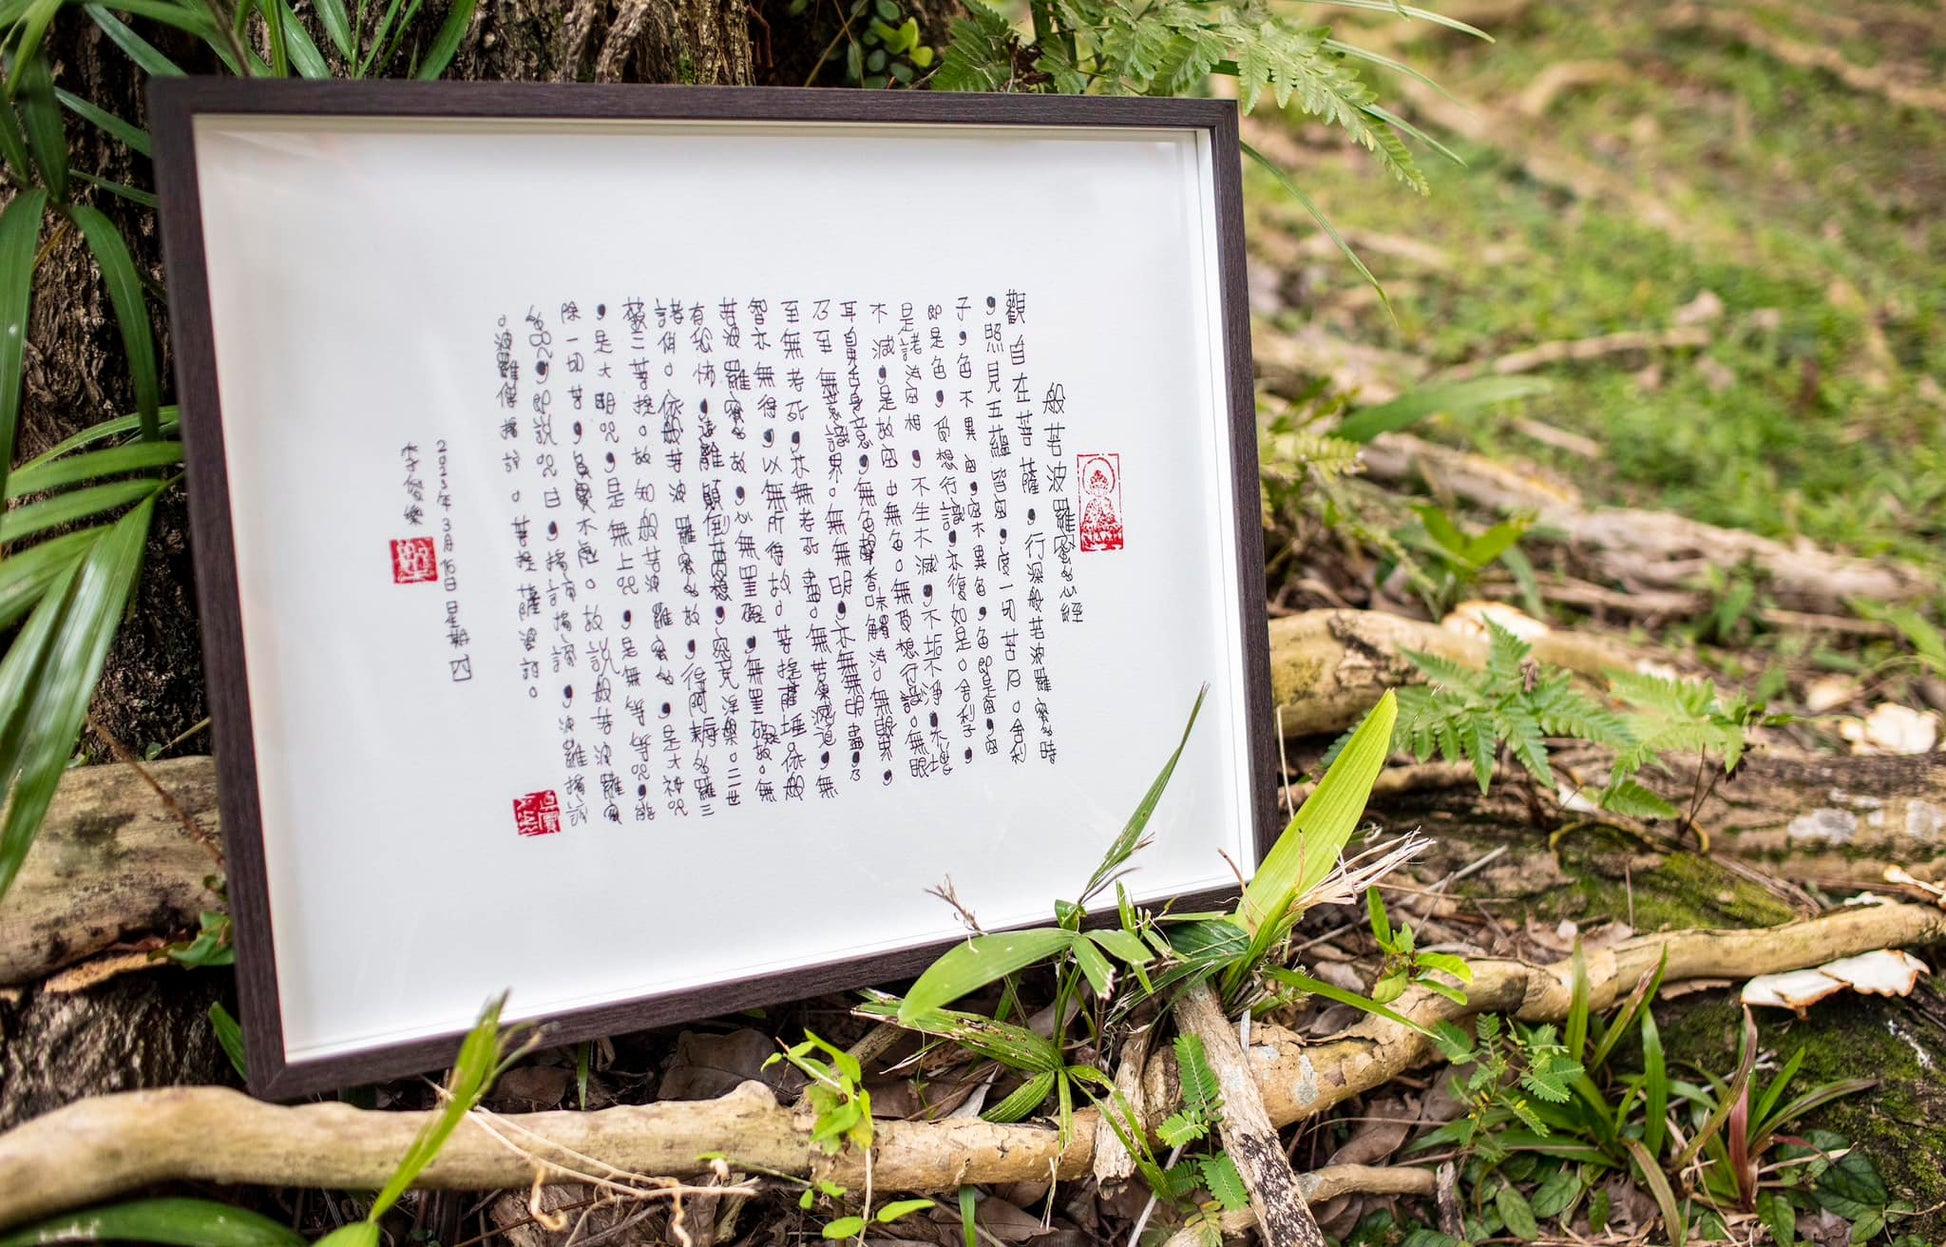 般若波羅蜜多心經
觀自在菩薩，行深般若波羅蜜多時
，照見五蘊皆空，度一切苦厄。舍利
子，色不異空，空不異色，色即是空，空
即是色，受想行識，亦復如是。舍利子，
是諸法空相，不生不滅，不垢不淨，不增
不減，是故空中無色。無受想行識。無眼
耳鼻舌身意，無色聲香味觸法。無眼界，
乃至無意識界。無無明，亦無無明盡，乃
至無老死，亦無老死盡。無苦集滅道，無
智亦無得，以無所得故。菩提薩埵。依般
若波羅蜜多故，心無罣礙，無罣礙故。無
有恐怖，遠離顛倒夢想，究竟涅槃。三世
諸佛。依般若波羅蜜多故，得阿耨多羅三
藐三菩提。故知般若波羅蜜多，是大神咒
，是大明咒，是無上咒，是無等等咒，能
除一切苦，真實不虛。故說般若波羅蜜
多咒，即說咒曰，揭諦揭諦，波羅揭諦
。波羅僧揭諦。菩提薩婆訶。
2023年3月16日星期四
李俊樂
真實不虛